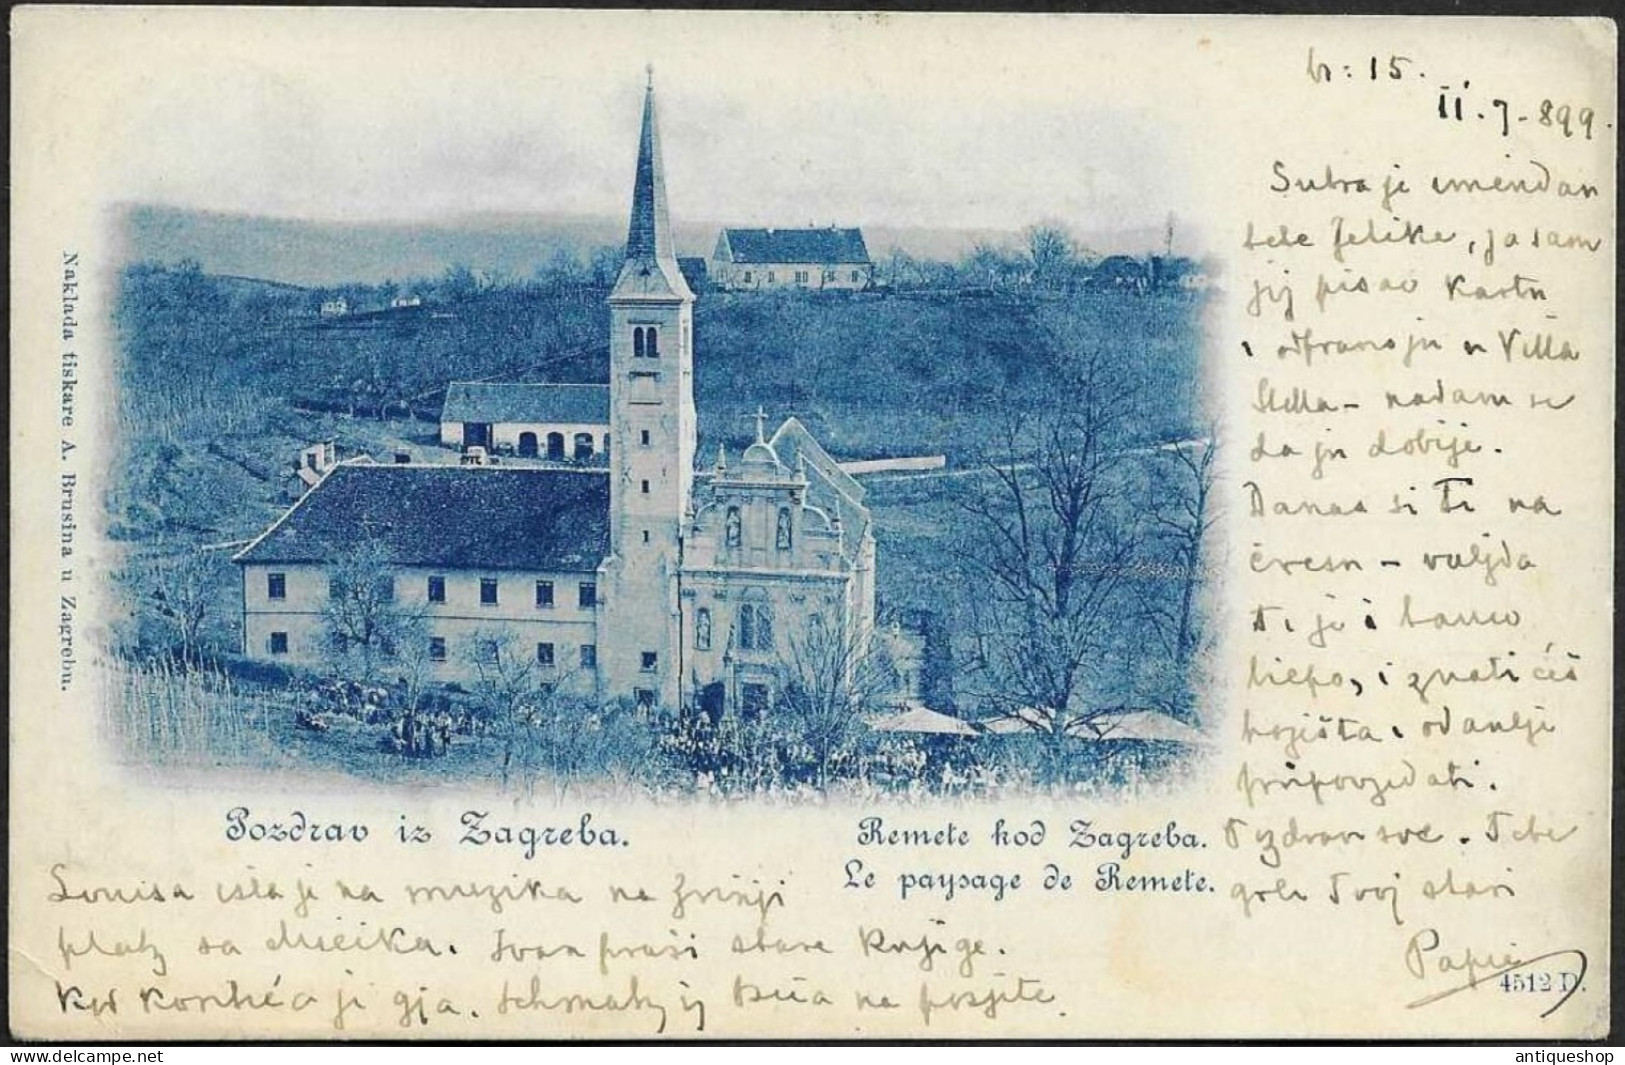 br: 15.
11.7-899.
Sutra je imendan
tete Jelike, ja sam
joj pisao kartu
i odpravio ju u Villa
Stella - nadam se
da ju dobije.
Danas si Ti na
- valjda
Ti je i tamo
liepo, i znati ćeš
koješta i odanlje
pripovjedati.
Pozdravi sve. Tebe
grli Tvoj stari
Papa
Pozdrav iz Zagreba.
Remete kod Zagreba.
Le paysage de Remete.
Naklada tiskare A. Brusina u Zagrebu.
Louisa išla je na muziku na Zrinji
platz sa Micikom. Ivan praši stare knjige.
Kod je gja. iz na posjete.
4512 D.
antiqueshop